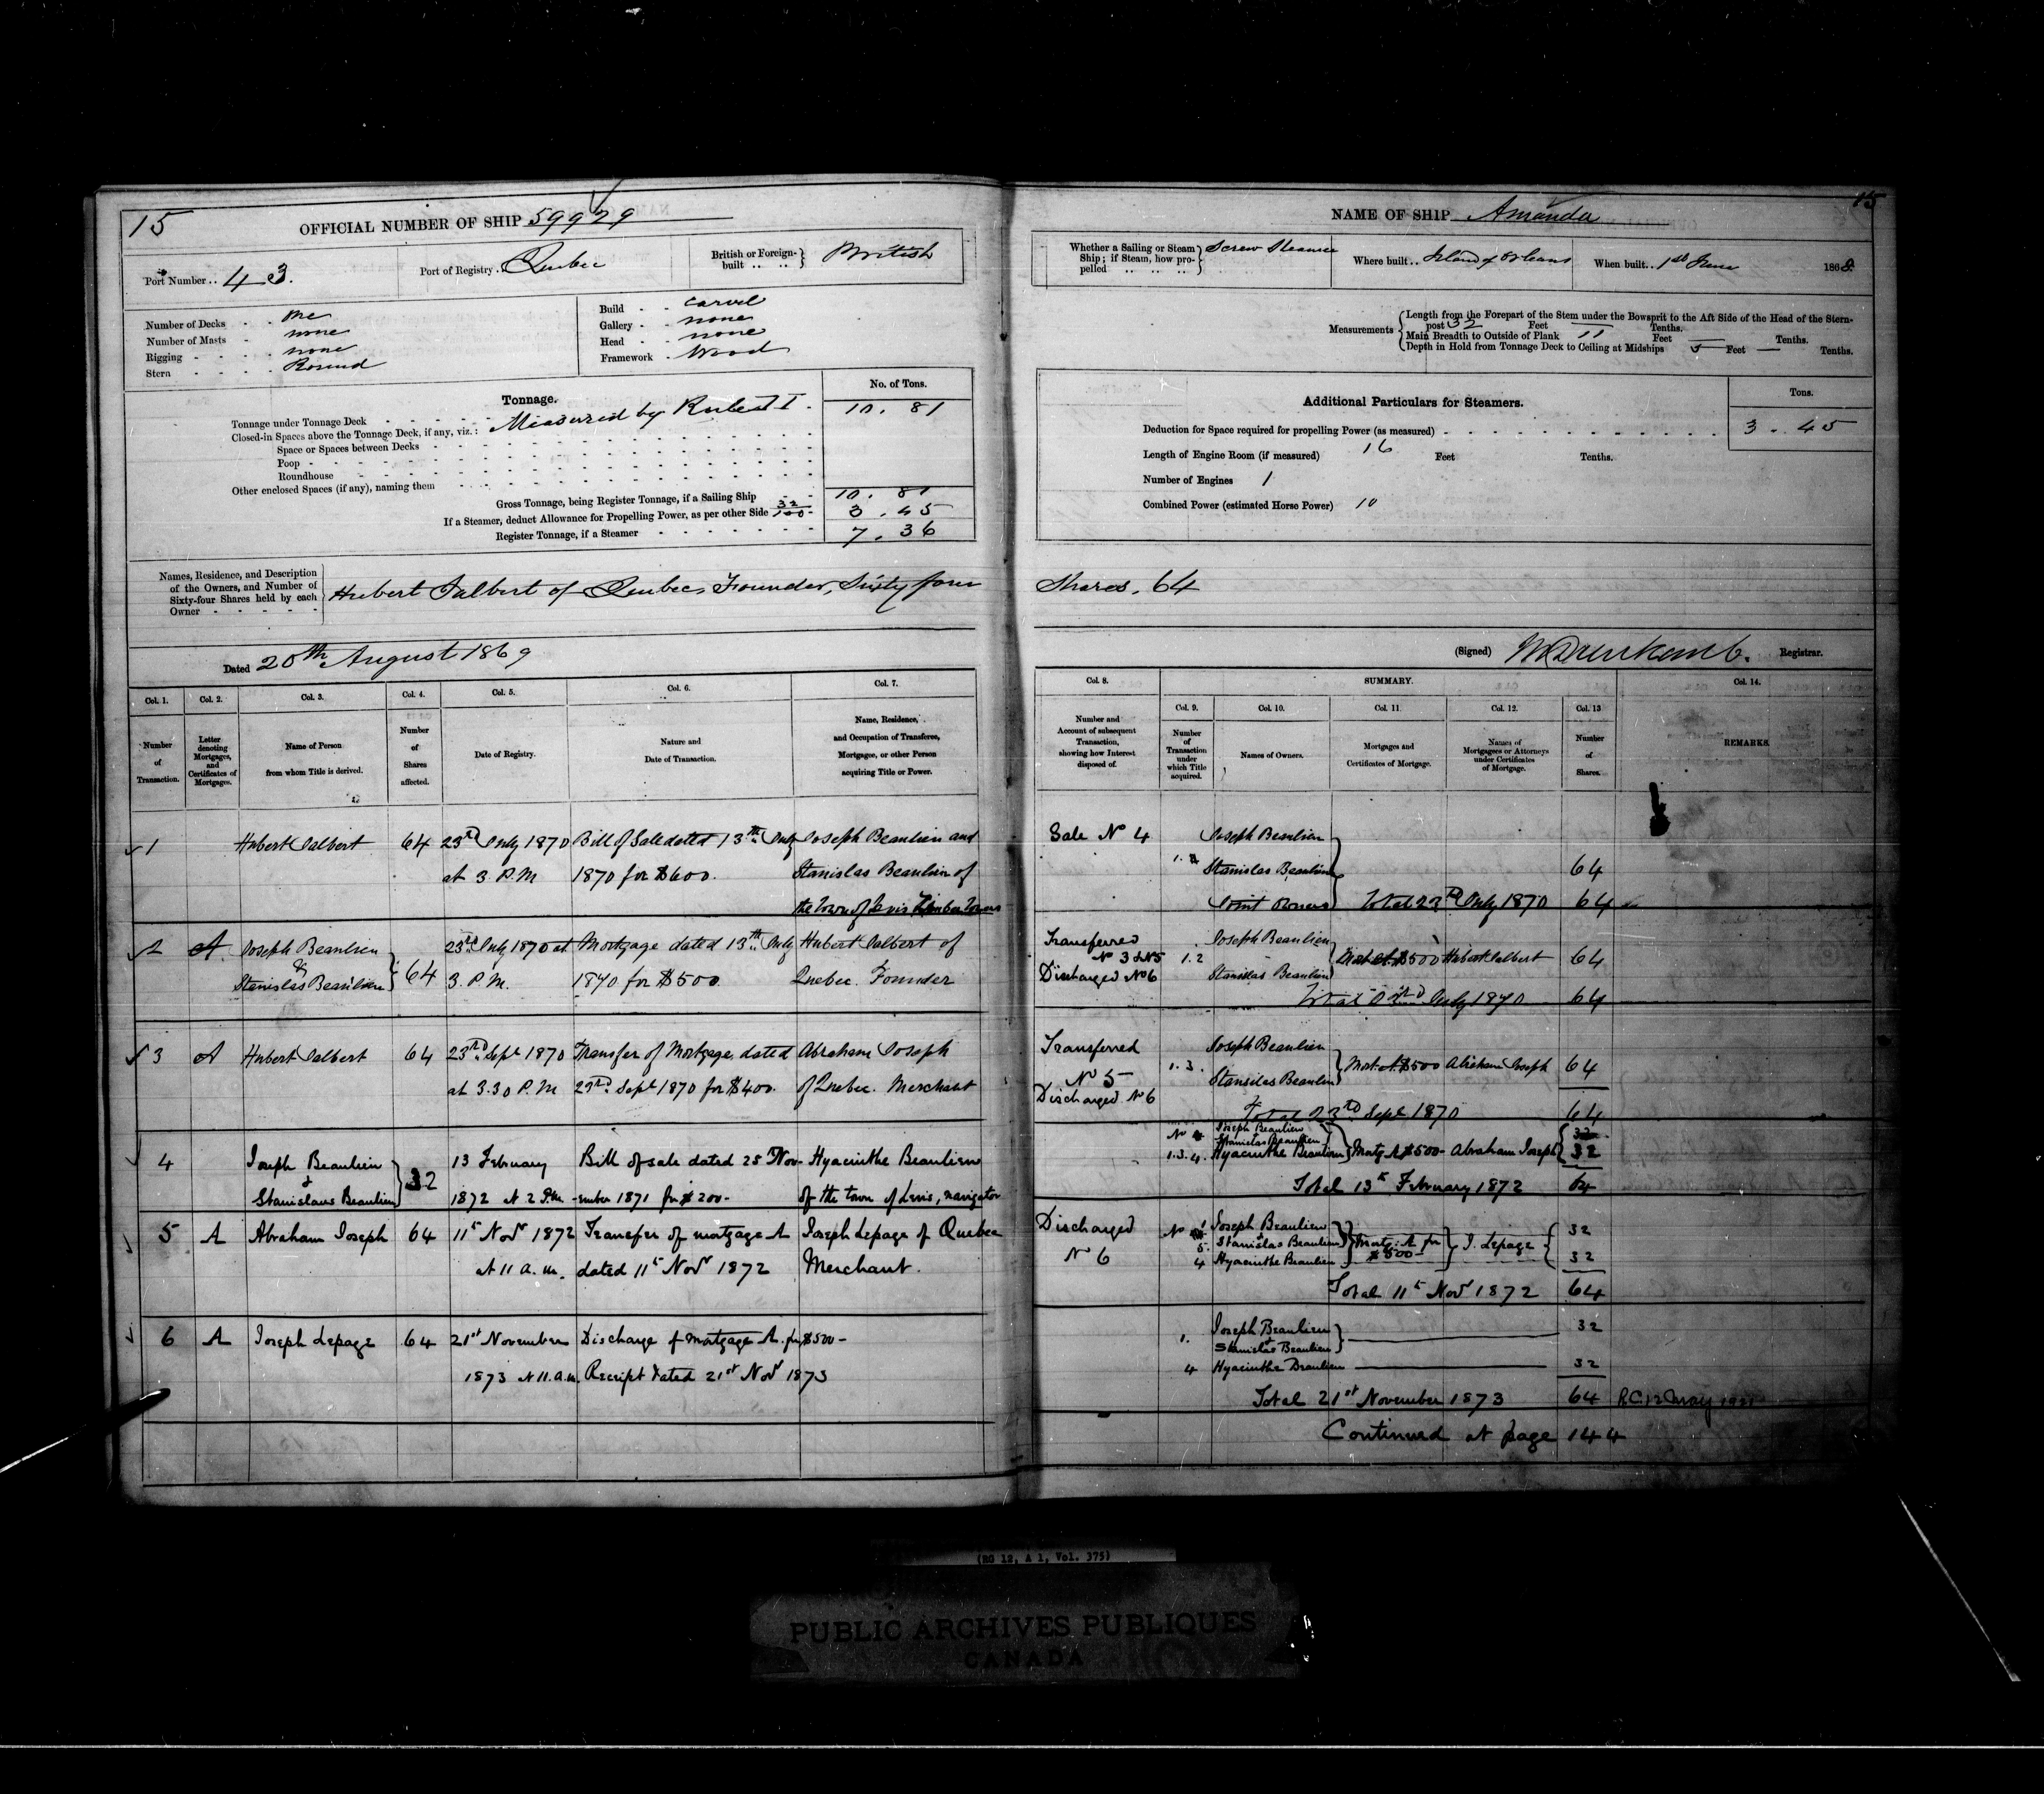 15
OFFICIAL NUMBER OF SHIP 59929
Port Number .. 43.
Port of Registry . Quebec
British or Foreign-built .. .. British
Number of Decks - - One
Number of Masts - none
Rigging - - - - none
Stern - - - - Round
Build - - Carvel
Gallery - - none
Head - - none
Framework - Wood
Tonnage.
No. of Tons.
Tonnage under Tonnage Deck 10. 81
Closed-in Spaces above the Tonnage Deck, if any, viz.: Measured by Rule I.
Space or Spaces between Decks
Poop
Roundhouse
Other enclosed Spaces (if any), naming them
Gross Tonnage, being Register Tonnage, if a Sailing Ship 10. 81
If a Steamer, deduct Allowance for Propelling Power, as per other Side 32/100 3. 45
Register Tonnage, if a Steamer 7. 36
Names, Residence, and Description
of the Owners, and Number of
Sixty-four Shares held by each
Owner
Hubert Talbert of Quebec, Founder, Sixty four
Dated 20th August 1869
Col. 1. Col. 2. Col. 3. Col. 4. Col. 5. Col. 6. Col. 7.
Number of Transaction.
Letter denoting Mortgages, and Certificates of Mortgages.
Name of Person from whom Title is derived.
Number of Shares affected.
Date of Registry.
Nature and Date of Transaction.
Name, Residence, and Occupation of Transferee, Mortgagee, or other Person acquiring Title or Power.
1 Hubert Talbert 64 23rd July 1870 Bill of Sale dated 13th July Joseph Beaulieu and
at 3 P.M 1870 for $600. Stanislas Beaulieu of
the Town of Levis
2 A Joseph Beaulieu 23rd July 1870 at Mortgage dated 13th July Hubert Talbert of
& Stanislas Beaulieu 64 3. P.M. 1870 for $500. Quebec. Founder
3 A Hubert Talbert 64 23rd Sept 1870 Transfer of Mortgage dated Abraham Joseph
at 3.30 P.M 23rd Sept 1870 for $400. of Quebec. Merchant
4 Joseph Beaulieu 13 February Bill of sale dated 25 Nov- Hyacinthe Beaulieu
+ Stanislaus Beaulieu 32 1872 at 2 P.M. -ember 1871 for $200- of the town of Levis, navigator
5 A Abraham Joseph 64 11th Novr 1872 Transfer of mortgage A Joseph Lepage of Quebec
at 11 a.m. dated 11th Novr 1872 Merchant.
6 A Joseph Lepage 64 21st November Discharge of mortgage A. for $500-
1873 at 11.a.m. Receipt dated 21st Novr 1873
15
NAME OF SHIP Amanda
Whether a Sailing or Steam Ship; if Steam, how propelled .. .. .. Screw Steamer
Where built .. Island of Orleans
When built .. 1st June 1868.
Measurements
Length from the Forepart of the Stem under the Bowsprit to the Aft Side of the Head of the Stern-
post 32 Feet — Tenths.
Main Breadth to Outside of Plank 11 Feet — Tenths.
Depth in Hold from Tonnage Deck to Ceiling at Midships 5 Feet — Tenths.
Additional Particulars for Steamers.
Tons.
Deduction for Space required for propelling Power (as measured) 3. 45
Length of Engine Room (if measured) 16 Feet Tenths.
Number of Engines 1
Combined Power (estimated Horse Power) 10
Shares. 64
(Signed) Registrar.
Col. 8. SUMMARY. Col. 14.
Col. 9. Col. 10. Col. 11. Col. 12. Col. 13
Number and Account of subsequent Transaction, showing how Interest disposed of.
Number of Transaction under which Title acquired.
Names of Owners.
Mortgages and Certificates of Mortgage.
Names of Mortgagees or Attorneys under Certificates of Mortgage.
Number of Shares.
REMARKS.
Sale No 4 Joseph Beaulieu
1. Stanislas Beaulieu 64
Joint Owners Total 23rd July 1870 64
Transferred Joseph Beaulieu
No 3 & No 5 1.2 Mort. A. $500 Hubert Talbert 64
Discharged No 6 Stanislas Beaulieu
Total 23rd July 1870 64
Transferred Joseph Beaulieu
No 5 1.3. Mort. A $500 Abraham Joseph 64
Discharged No 6 Stanislas Beaulieu
Total 23rd Sept 1870 64
No Joseph Beaulieu 32
Stanislas Beaulieu
1.3.4. Hyacinthe Beaulieu Mortg A $500- Abraham Joseph 32
Total 13th February 1872 64
Discharged No 1 Joseph Beaulieu 32
5. Stanislas Beaulieu Mortg: A for $500- J. Lepage
No 6 4 Hyacinthe Beaulieu 32
Total 11th Novr 1872 64
1. Joseph Beaulieu + Stanislas Beaulieu 32
4 Hyacinthe Beaulieu 32
Total 21st November 1873 64 R.C. 12 May
Continued at page 144
(RG 12, A 1, Vol. 375)
PUBLIC ARCHIVES PUBLIQUES
CANADA